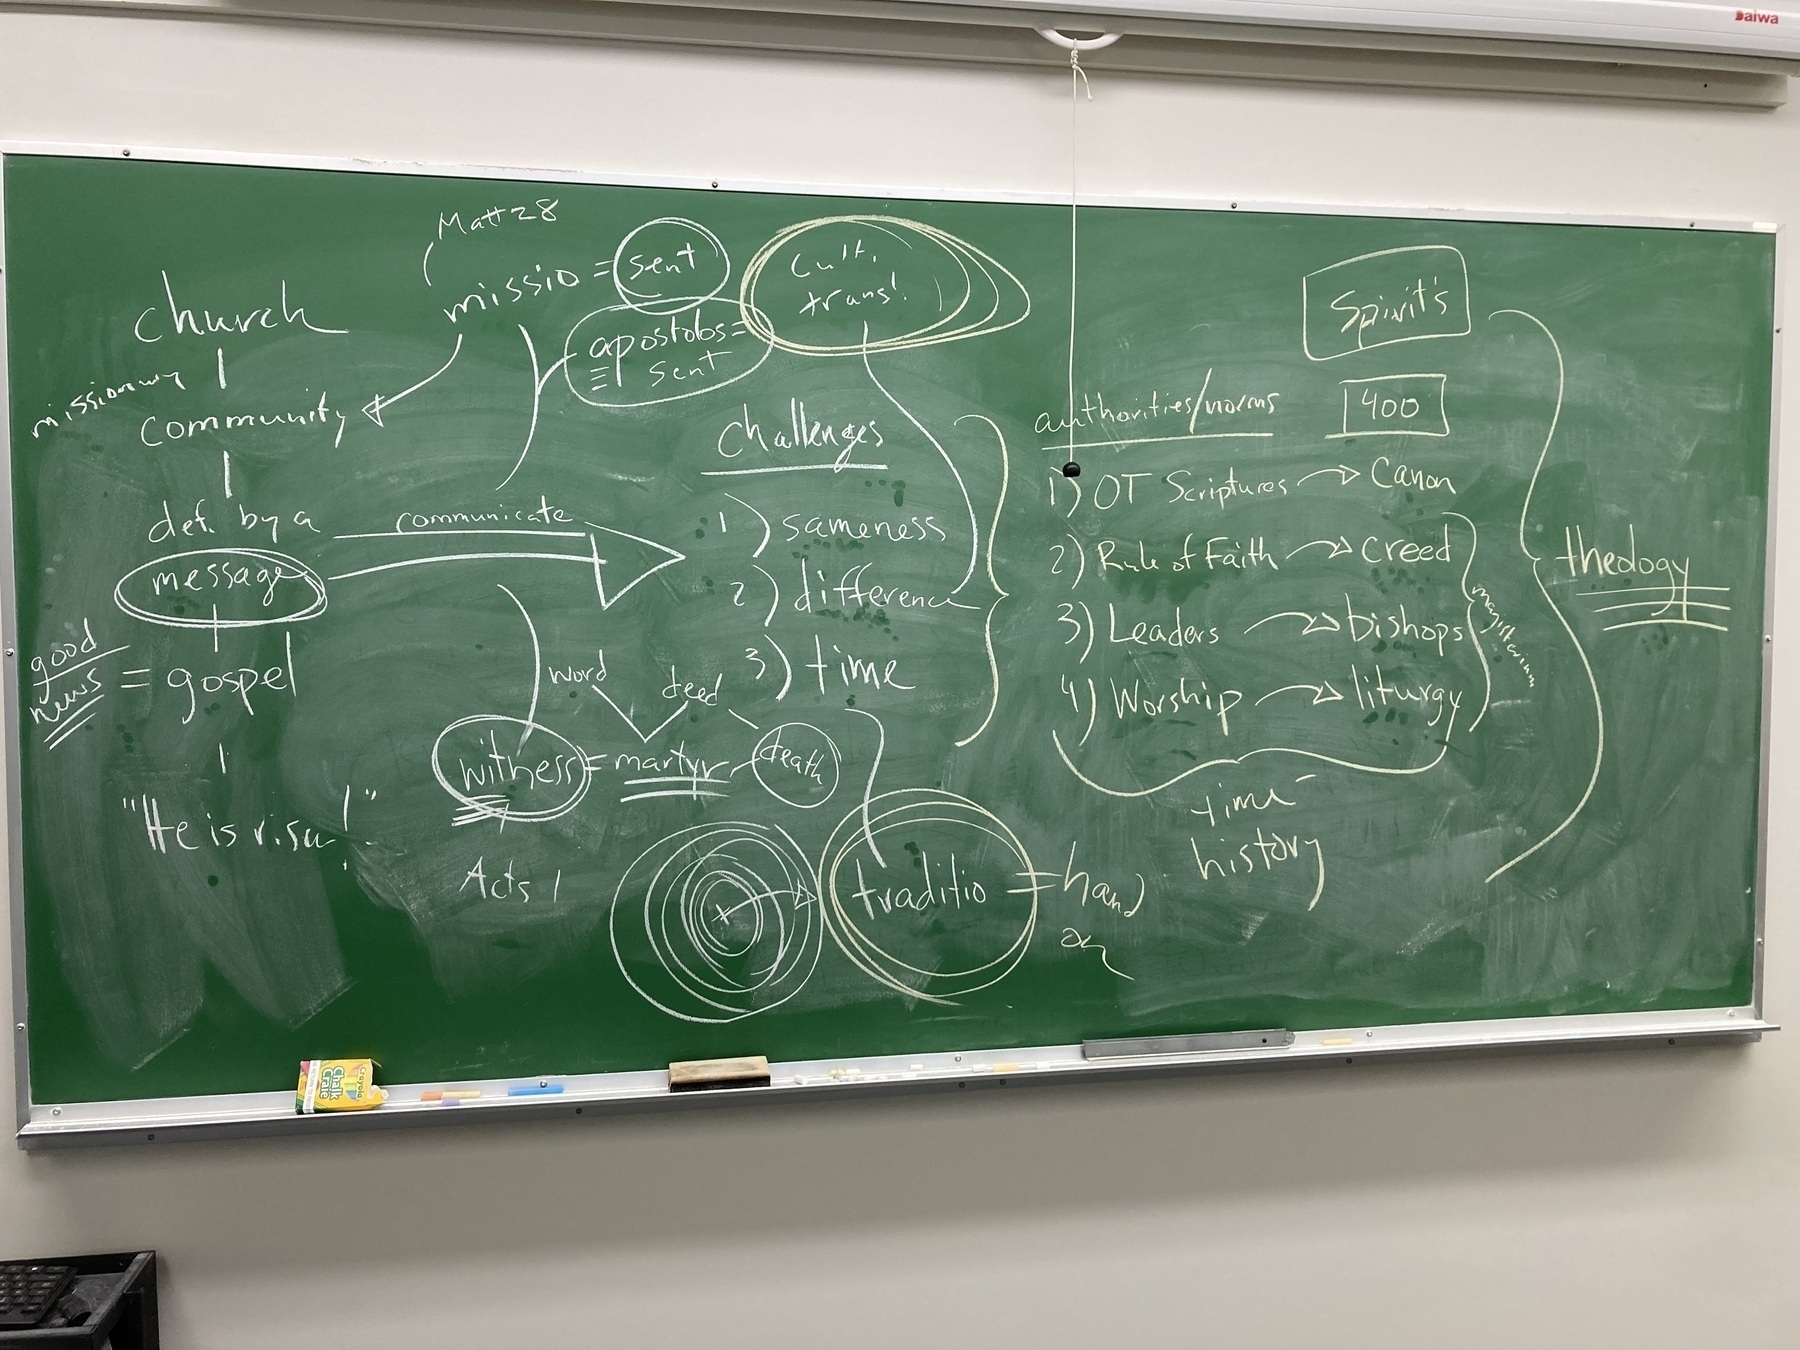 Daiwa
Matt 28
missio = sent
apostolos =
sent
cult.
transl.
church
missionary
community
def. by a
message
good
news = gospel
"He is risen!"
communicate
Challenges
1) sameness
2) difference
3) time
word
deed
witness = martyr
death
Acts 1
traditio = hand
on
Spirit's
authorities/norms
400
1) OT Scriptures → Canon
2) Rule of Faith → creed
3) Leaders → bishops
4) Worship → liturgy
magisterium
time
history
theology
Crayola
Chalk
Crate